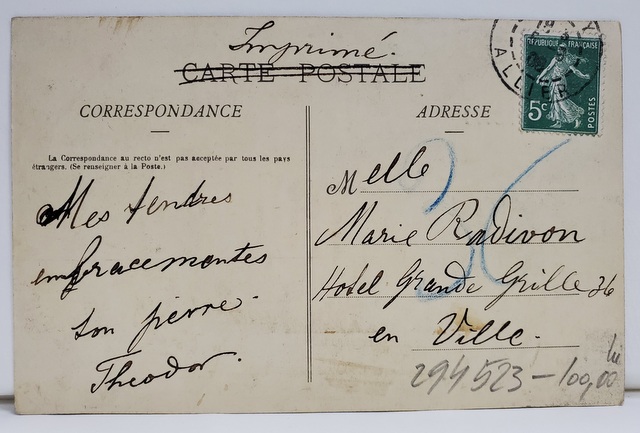 Imprimé.
CARTE POSTALE
CORRESPONDANCE
La Correspondance au recto n'est pas acceptée par tous les pays
étrangers. (Se renseigner à la Poste.)
Mes tendres
embracementes
ton pierre.
Theodor.
ADRESSE
Melle
Marie Radivon
Hotel Grande Grille 36
en Ville.
26
294523-100,00
REPUBLIQUE FRANÇAISE
5c
POSTES
ALLIER